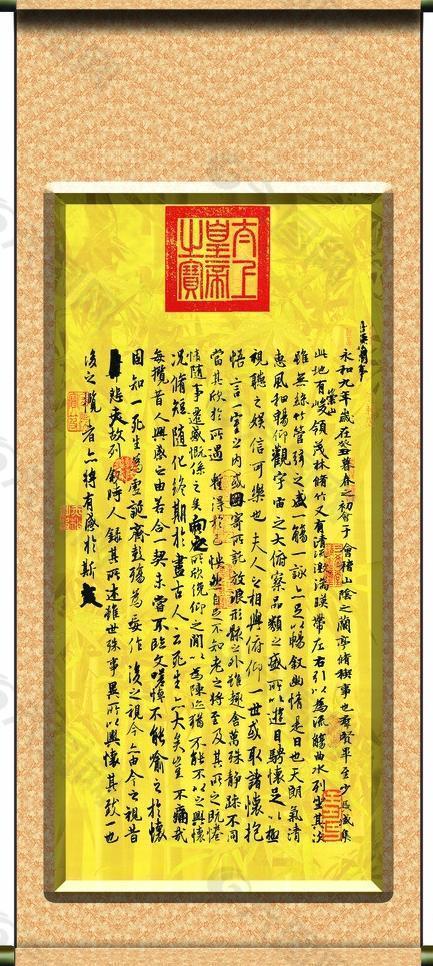 太上
皇帝
之寶
永和九年歲在癸丑暮春之初會于會稽山陰之蘭亭脩稧事也羣賢畢至少長咸集
此地有崇山峻領茂林脩竹又有清流激湍暎帶左右引以為流觴曲水列坐其次
雖無絲竹管弦之盛一觴一詠亦足以暢敘幽情是日也天朗氣清
惠風和暢仰觀宇宙之大俯察品類之盛所以遊目騁懷足以極
視聽之娛信可樂也夫人之相與俯仰一世或取諸懷抱
悟言一室之內或因寄所託放浪形骸之外雖趣舍萬殊靜躁不同
當其欣於所遇暫得於己怏然自足不知老之將至及其所之既惓
情隨事遷感慨係之矣向之所欣俛仰之閒以為陳迹猶不能不以之興懷
況脩短隨化終期於盡古人云死生亦大矣豈不痛哉
每攬昔人興感之由若合一契未嘗不臨文嗟悼不能喻之於懷
固知一死生為虛誕齊彭殤為妄作後之視今亦由今之視昔
悲夫故列敘時人錄其所述雖世殊事異所以興懷其致一也
後之攬者亦將有感於斯文